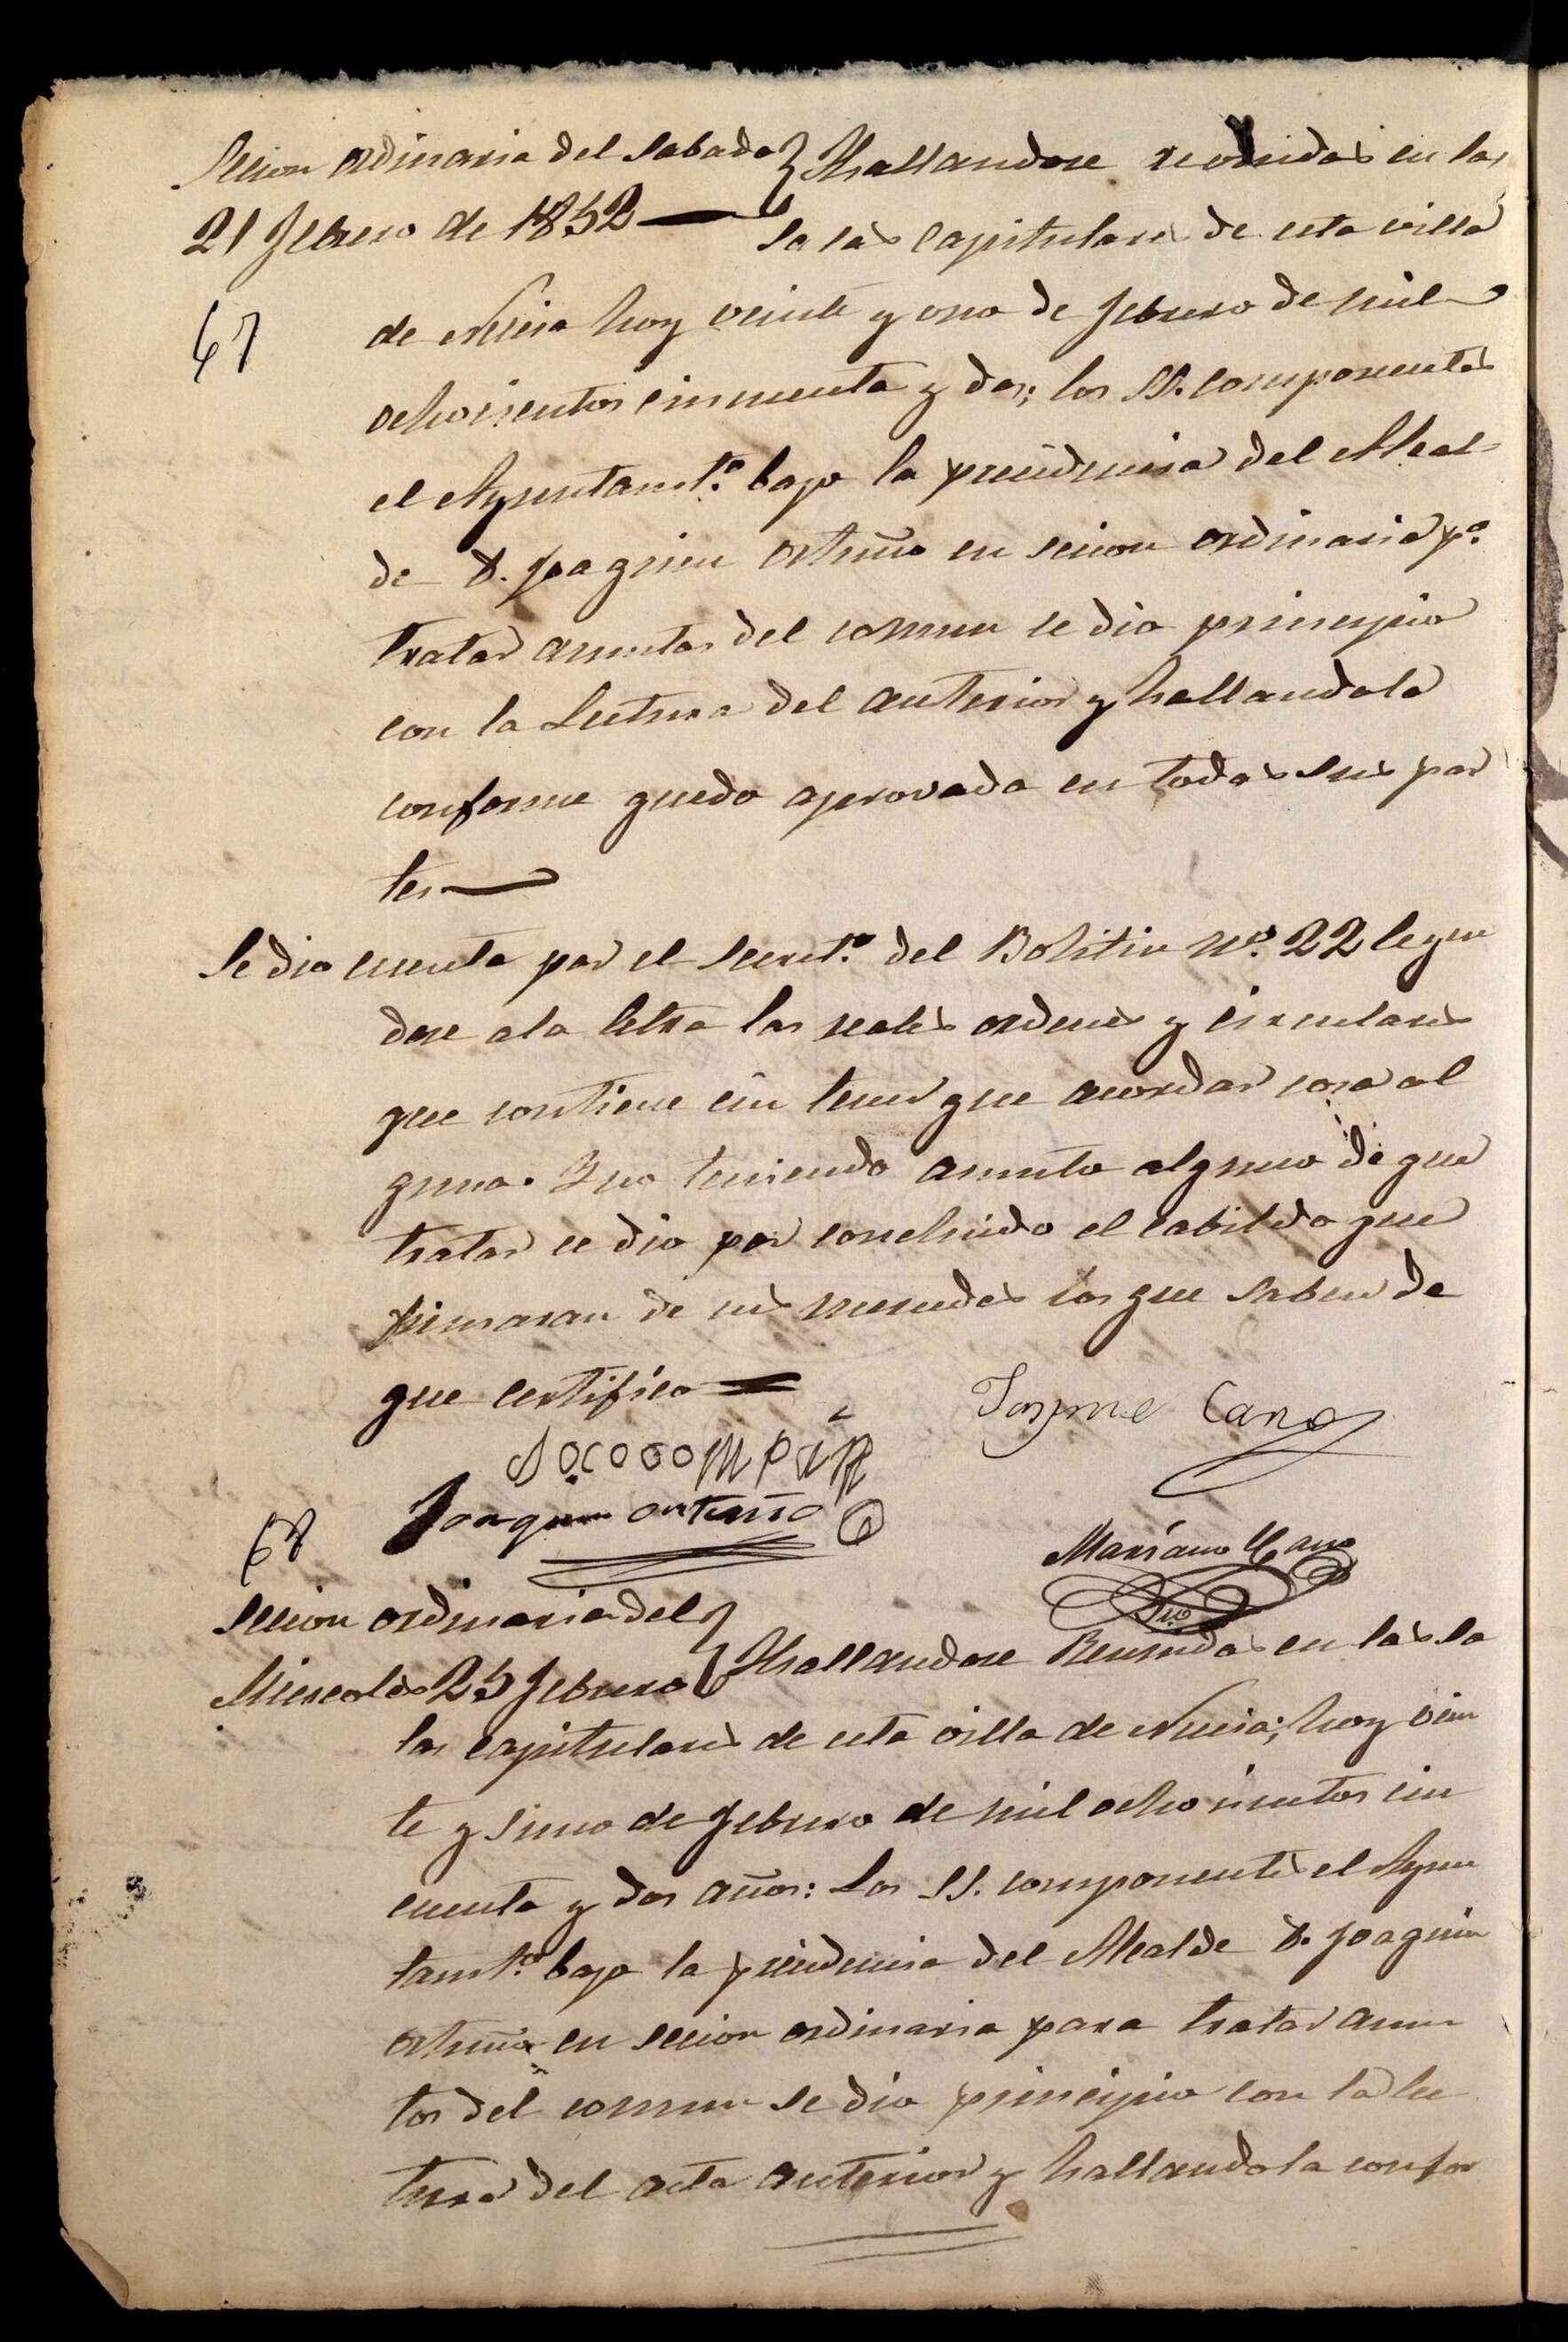 Secion ordinaria del Sabado
21 febrero de 1852
Hallandose reunidos en las
salas capitulares de esta villa
67
de Nucia hoy veinte y uno de febrero de mil
ochocientos cincuenta y dos; los SS. componentes
el Ayuntamto. bajo la precidencia del Alcal-
de D. Joaquin Ortuño en secion ordinaria pa.
tratar asuntos del comun se dio principio
con la Lectura del anterior y hallandola
conforme quedo aprovada en todas sus par
tes
Se dio cuenta por el Secreto. del Bolitin No. 22 leyen
dose a la letra las reales ordenes y circulares
que contiene cin tener que acordar cosa al
guna. Y no teniendo asunto alguno de que
tratar se dio por concluido el cabildo que
firmaran de sus mercedes los que saben de
que certifico
Jayme Cano
Joaquin Ortuño
Mariano Cano
Srio
68
Secion ordinaria del
Miercoles 25 febrero
Hallandose Reunidos en las sa
las capitulares de esta villa de Nucia; hoy vein
te y sinco de febrero de mil ochocientos cin
cuenta y dos años: Los SS. componentes el Ayun
tamto. bajo la precidencia del Alcalde D. Joaquin
Ortuño en secion ordinaria para tratar asun
tos del comun se dio principio con la lec
tura del acta anterior y hallandola confor